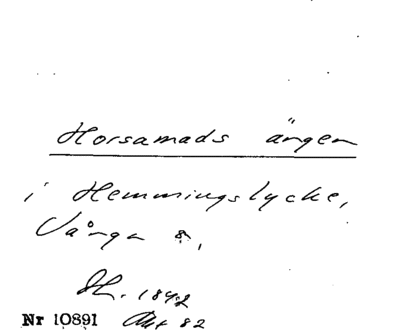 Horsamads ängen
i Hemmingslycke,
Vånga 8,
Sk. 1842
Nr 10891 Akt 82